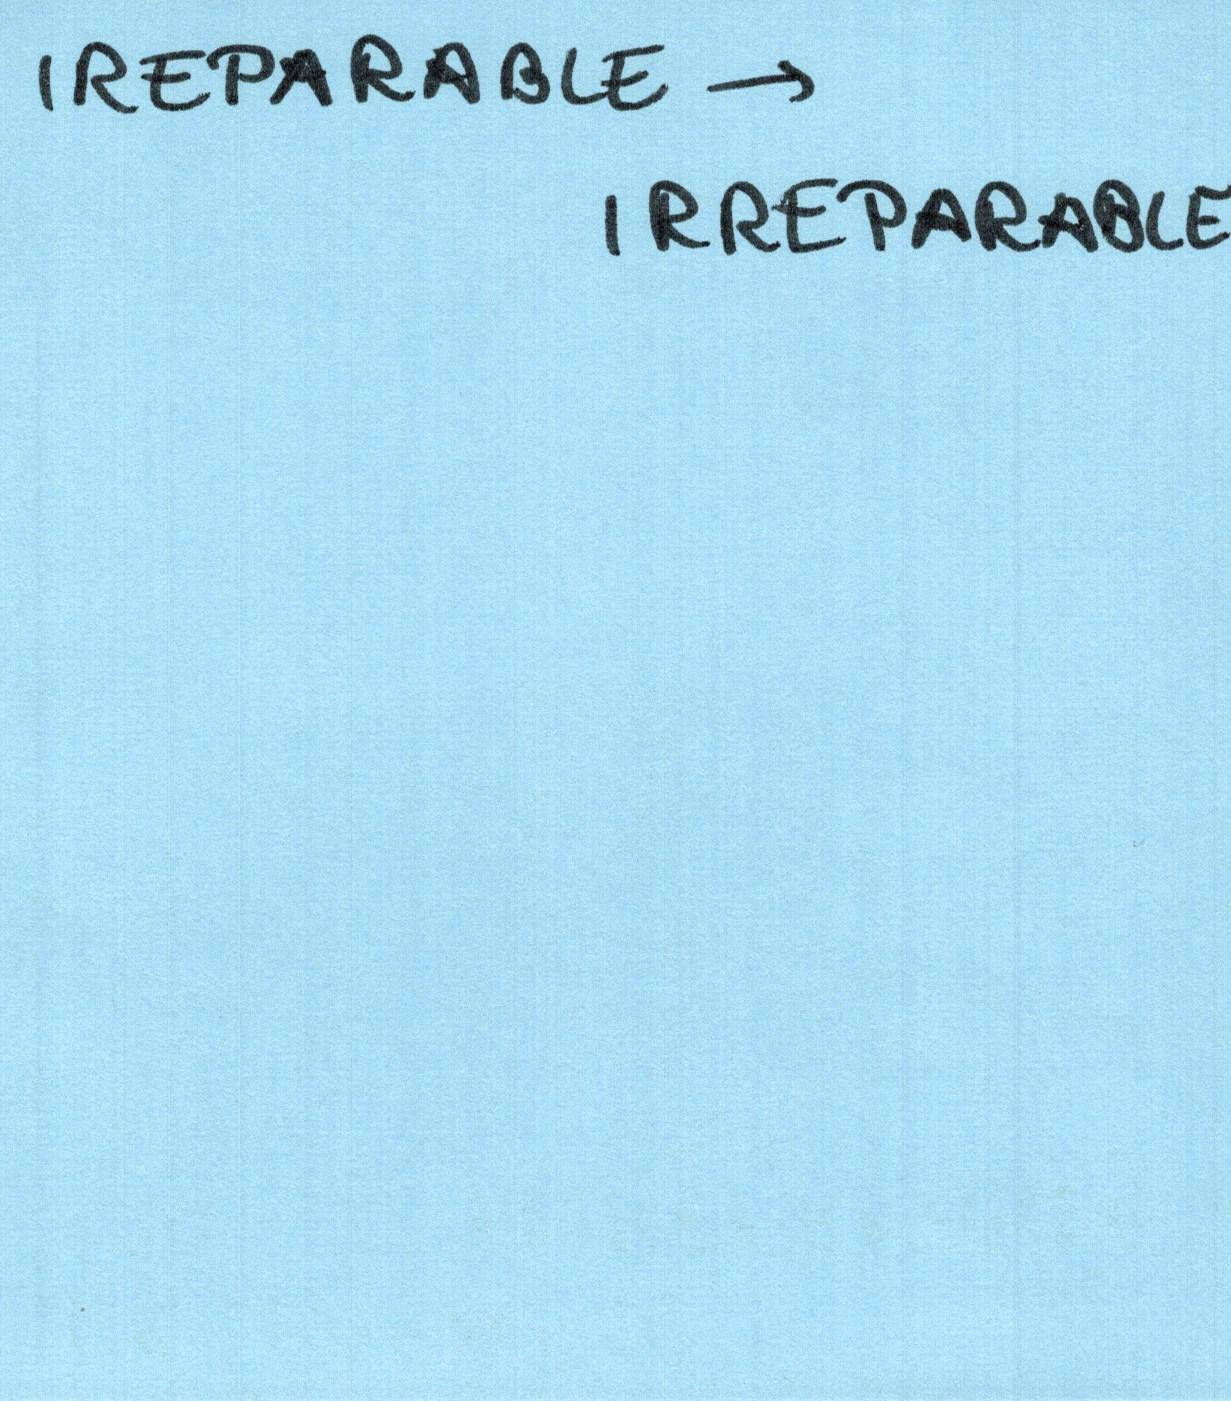 IREPARABLE →
IRREPARABLE